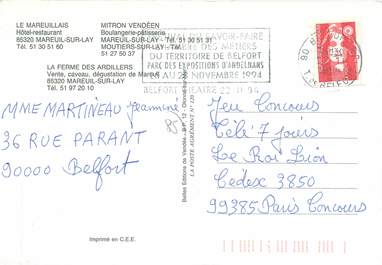 LE MAREUILLAIS
Hôtel-restaurant
85320 MAREUIL-SUR-LAY
Tél. 51 30 51 60
MITRON VENDÉEN
Boulangerie-pâtisserie
MAREUIL-SUR-LAY - Tél. 51 30 51 37
MOUTIERS-SUR-LAY - Tél.
51 27 50 37
LA FERME DES ARDILLERS
Vente, caveau, dégustation de Mareuil
85320 MAREUIL-SUR-LAY
Tél. 51 97 20 10
SAVOIR-FAIRE
DES METIERS
DU TERRITOIRE DE BELFORT
PARC DES EXPOSITIONS D'ANDELNANS
AU 27 NOVEMBRE 1994
BELFORT
22 11 94
90
MME MARTINEAU Jeannine
36 RUE PARANT
90000 Belfort
Jeu Concours
Télé 7 jours
Le Roi Lion
Cedex 3850
99385 Paris Concours
Imprimé en C.E.E.
LA POSTE AGRÉMENT N° 120